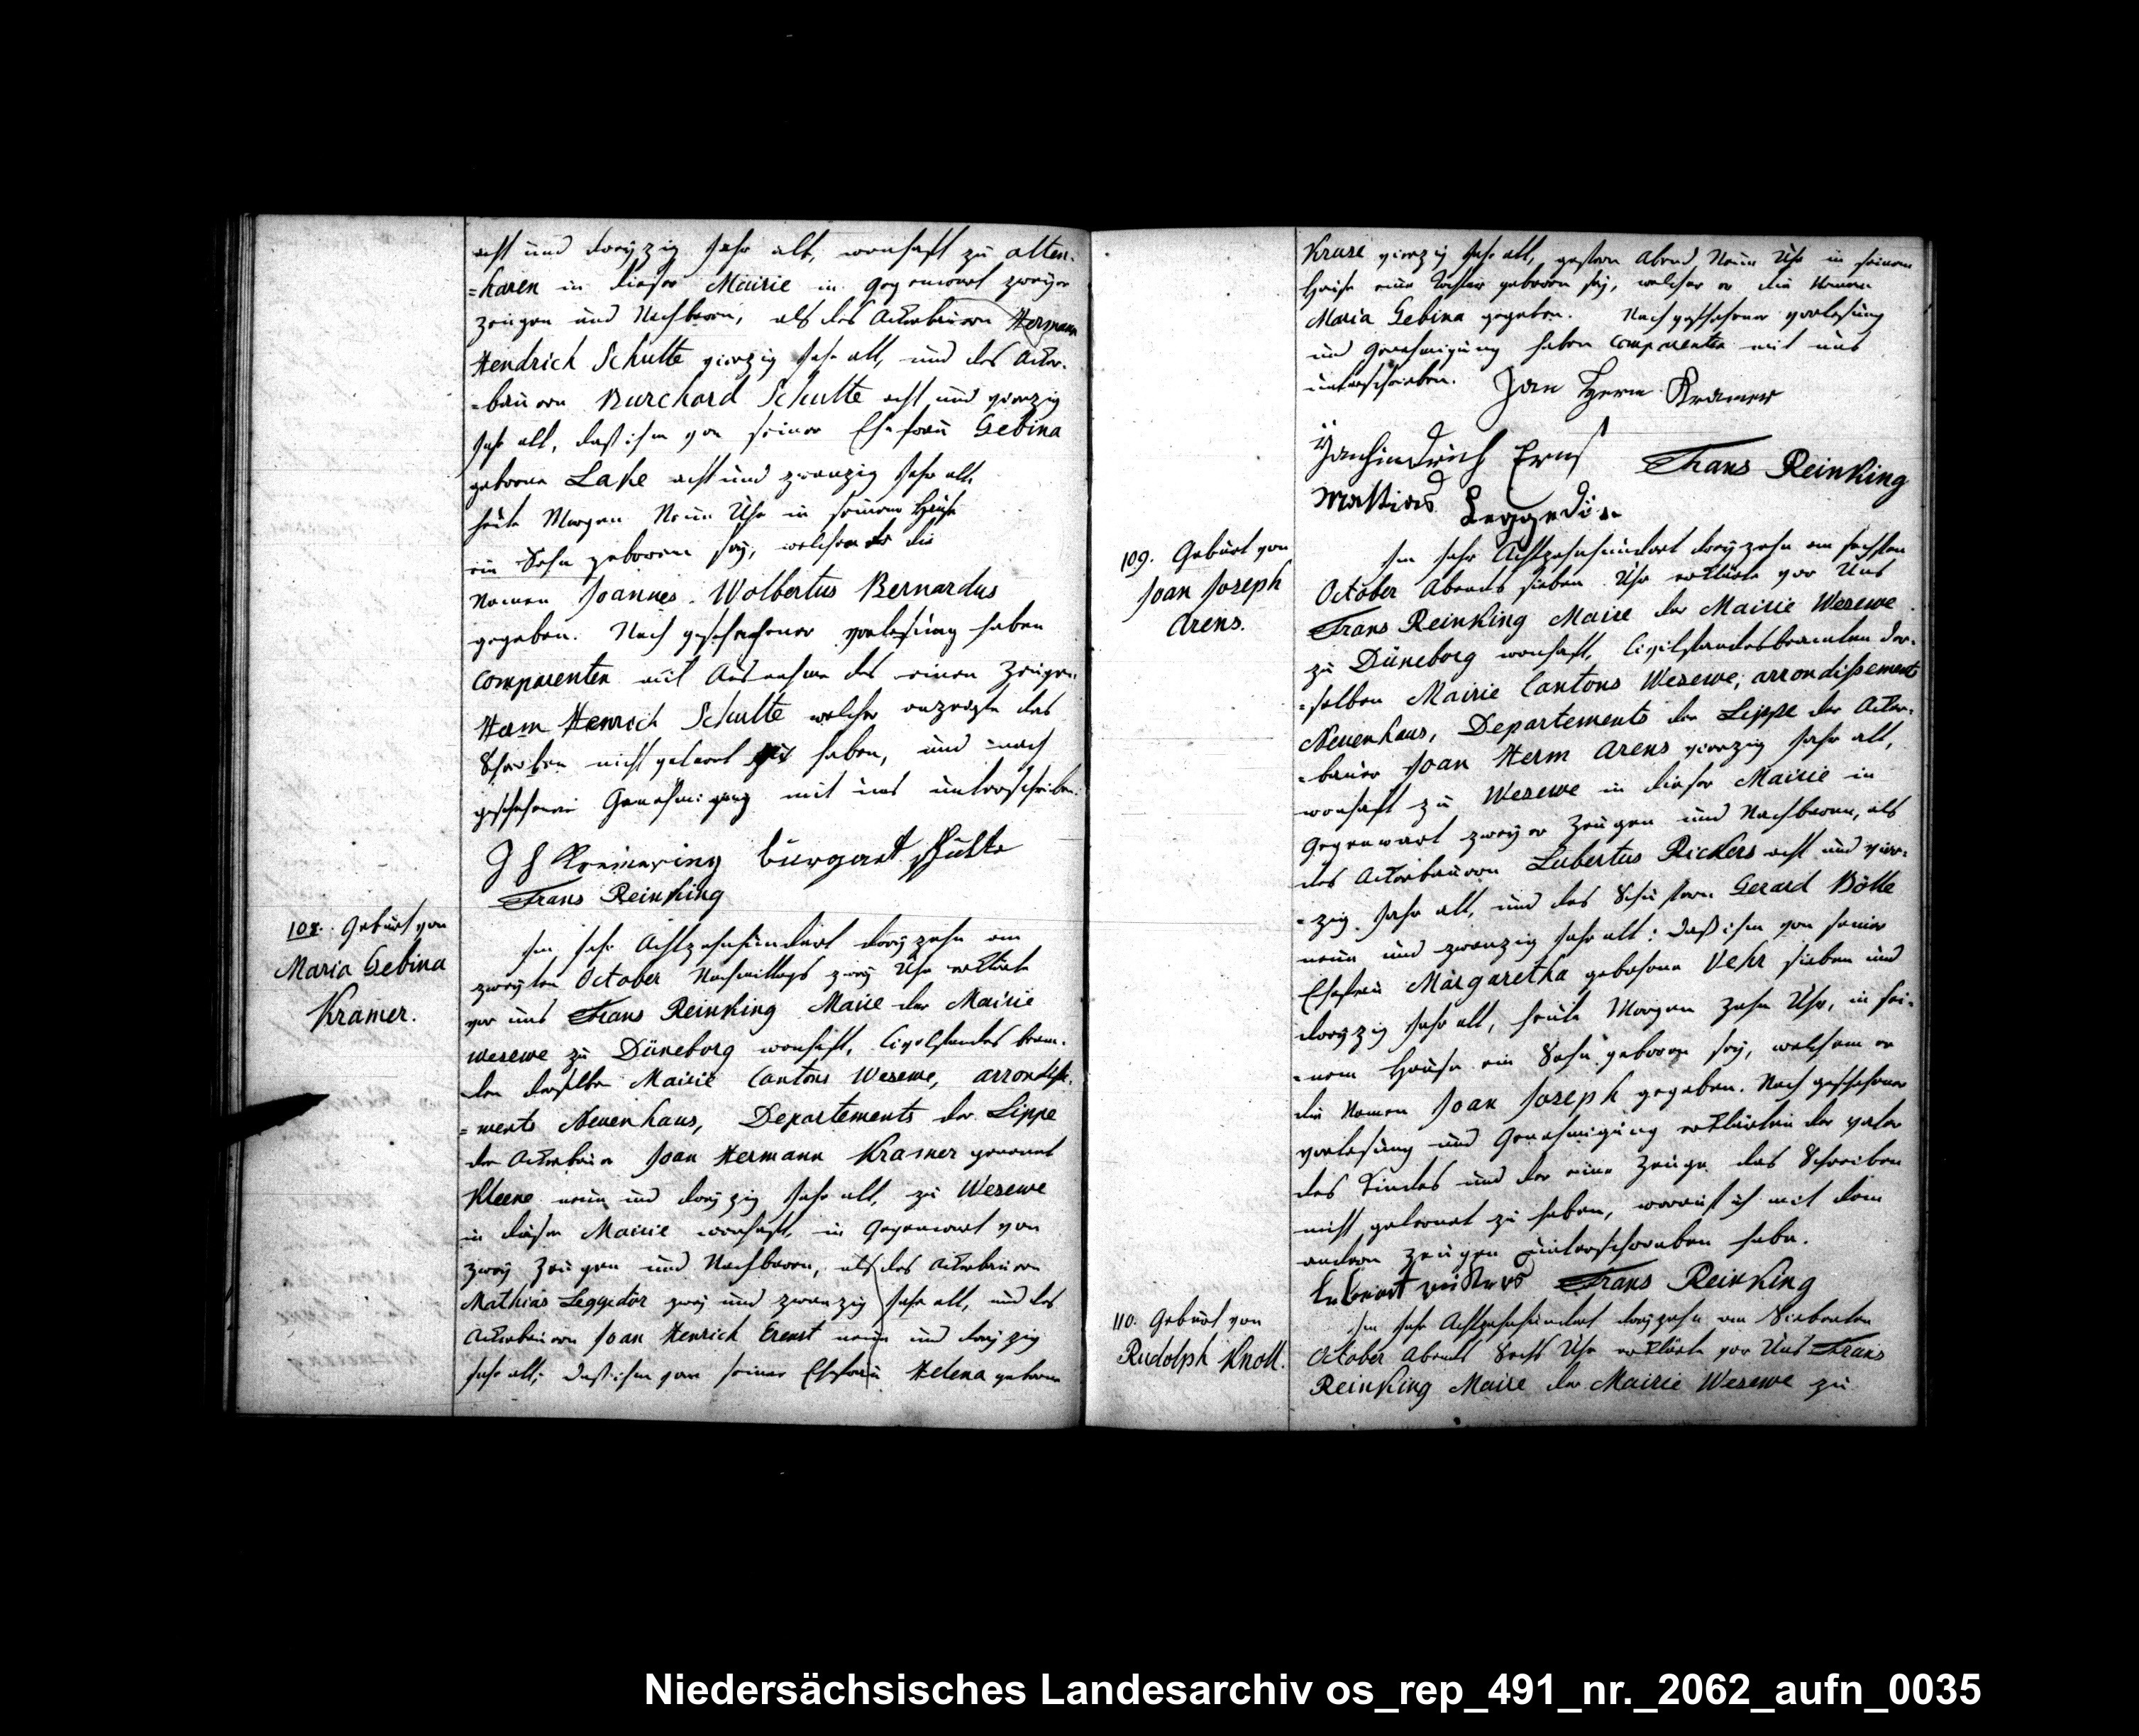 acht und dreyzig Jahr alt, wonhaft zu alten-
=haren in dieser Mairie in Gegenwart zweyer
Zeugen und Nachbaren, als des Ackerbauern Hermann
Hendrich Schulte vierzig Jahr alt, und des Acker-
=bauern Burchard Schulte acht und vierzig
Jahr alt, daß ihm von seiner Ehefrau Gebina
geborne Lake acht und zwanzig Jahr alt,
heute Morgen Neun Uhr in seinem Hause
ein Sohn geboren sey, welchem er die
Namen Joannes Wolbertus Bernardus
gegeben. Nach geschehener Vorlesung haben
Comparenten mit Ausnahme des einen Zeugen
Herm Henrich Schulte welcher anzeigte das
Schreiben nicht gelernt zu haben, und nach
geschehener Genehmigung mit uns unterschrieben.
burgart schulte
Frans Reinking
108. Geburt von
Maria Gebina
Kramer.
Im Jahr Achtzehnhundert dreyzehn am
zweyten October Nachmittags zwey Uhr erklärte
vor uns Frans Reinking Maire der Mairie
Wesewe zu Düneborg wonhaft, Civilstandes beam-
ten derselben Mairie Cantons Wesewe, arrondisse-
=ments Neuenhaus, Departements der Lippe
der Ackerbauer Joan Hermann Kramer genannt
Kleene neun und dreyzig Jahr alt, zu Wesewe
in dieser Mairie wonhaft, in Gegenwart von
zwey Zeugen und Nachbaren, als des Ackerbauern
Mathias Leggedör zwey und zwanzig Jahr alt, und des
Ackerbauern Joan Henrich Erenst neun und dreyzig
Jahr alt; daß ihm von seiner Ehefrau Helena geborne
Kruse vierzig Jahr alt, gestern Abend Neun Uhr in seinem
Hause eine Tochter geboren sey, welcher er die Namen
Maria Gebina gegeben. Nach geschehener Vorlesung
und Genehmigung haben Comparenten mit uns
unterschrieben. Jan Herm Kramer
Janhindrich Ernst Frans Reinking
Mattias Leggedör
109. Geburt von
Joan Joseph
Arens.
Im Jahr Achtzehnhundert dreyzehn am sechsten
October Abends sieben Uhr erklärte vor Uns
Frans Reinking Maire der Mairie Wesewe
zu Düneborg wonhaft, Civilstandesbeamten der-
=selben Mairie Cantons Wesewe, arrondissements
Neuenhaus, Departements der Lippe der Acker-
=bauer Joan Herm Arens vierzig Jahr alt,
wonhaft zu Wesewe in dieser Mairie in
Gegenwart zweyer Zeugen und Nachbaren, als
des Ackerbauern Lubertus Rickers acht und vier-
=zig Jahr alt, und des Schustern Gerard Bölle
neun und zwanzig Jahr alt; daß ihm von seiner
Ehefrau Margaretha gebohrne Vehr sieben und
dreyzig Jahr alt, heute Morgen Zehn Uhr, in sei-
=nem Hause ein Sohn geboren sey, welchem er
die Namen Joan Joseph gegeben. Nach geschehener
Vorlesung und Genehmigung erklärten der Vater
des Kindes und der eine Zeuge das Schreiben
nicht gelernet zu haben, worauf ich mit dem
andern Zeugen unterschrieben habe.
Frans Reinking
110. Geburt von
Rudolph Knoll.
Im Jahr Achtzehnhundert dreyzehn am Siebenten
October Abends Sechs Uhr erklärte vor Uns Frans
Reinking Maire der Mairie Wesewe zu
Niedersächsisches Landesarchiv os_rep_491_nr._2062_aufn_0035